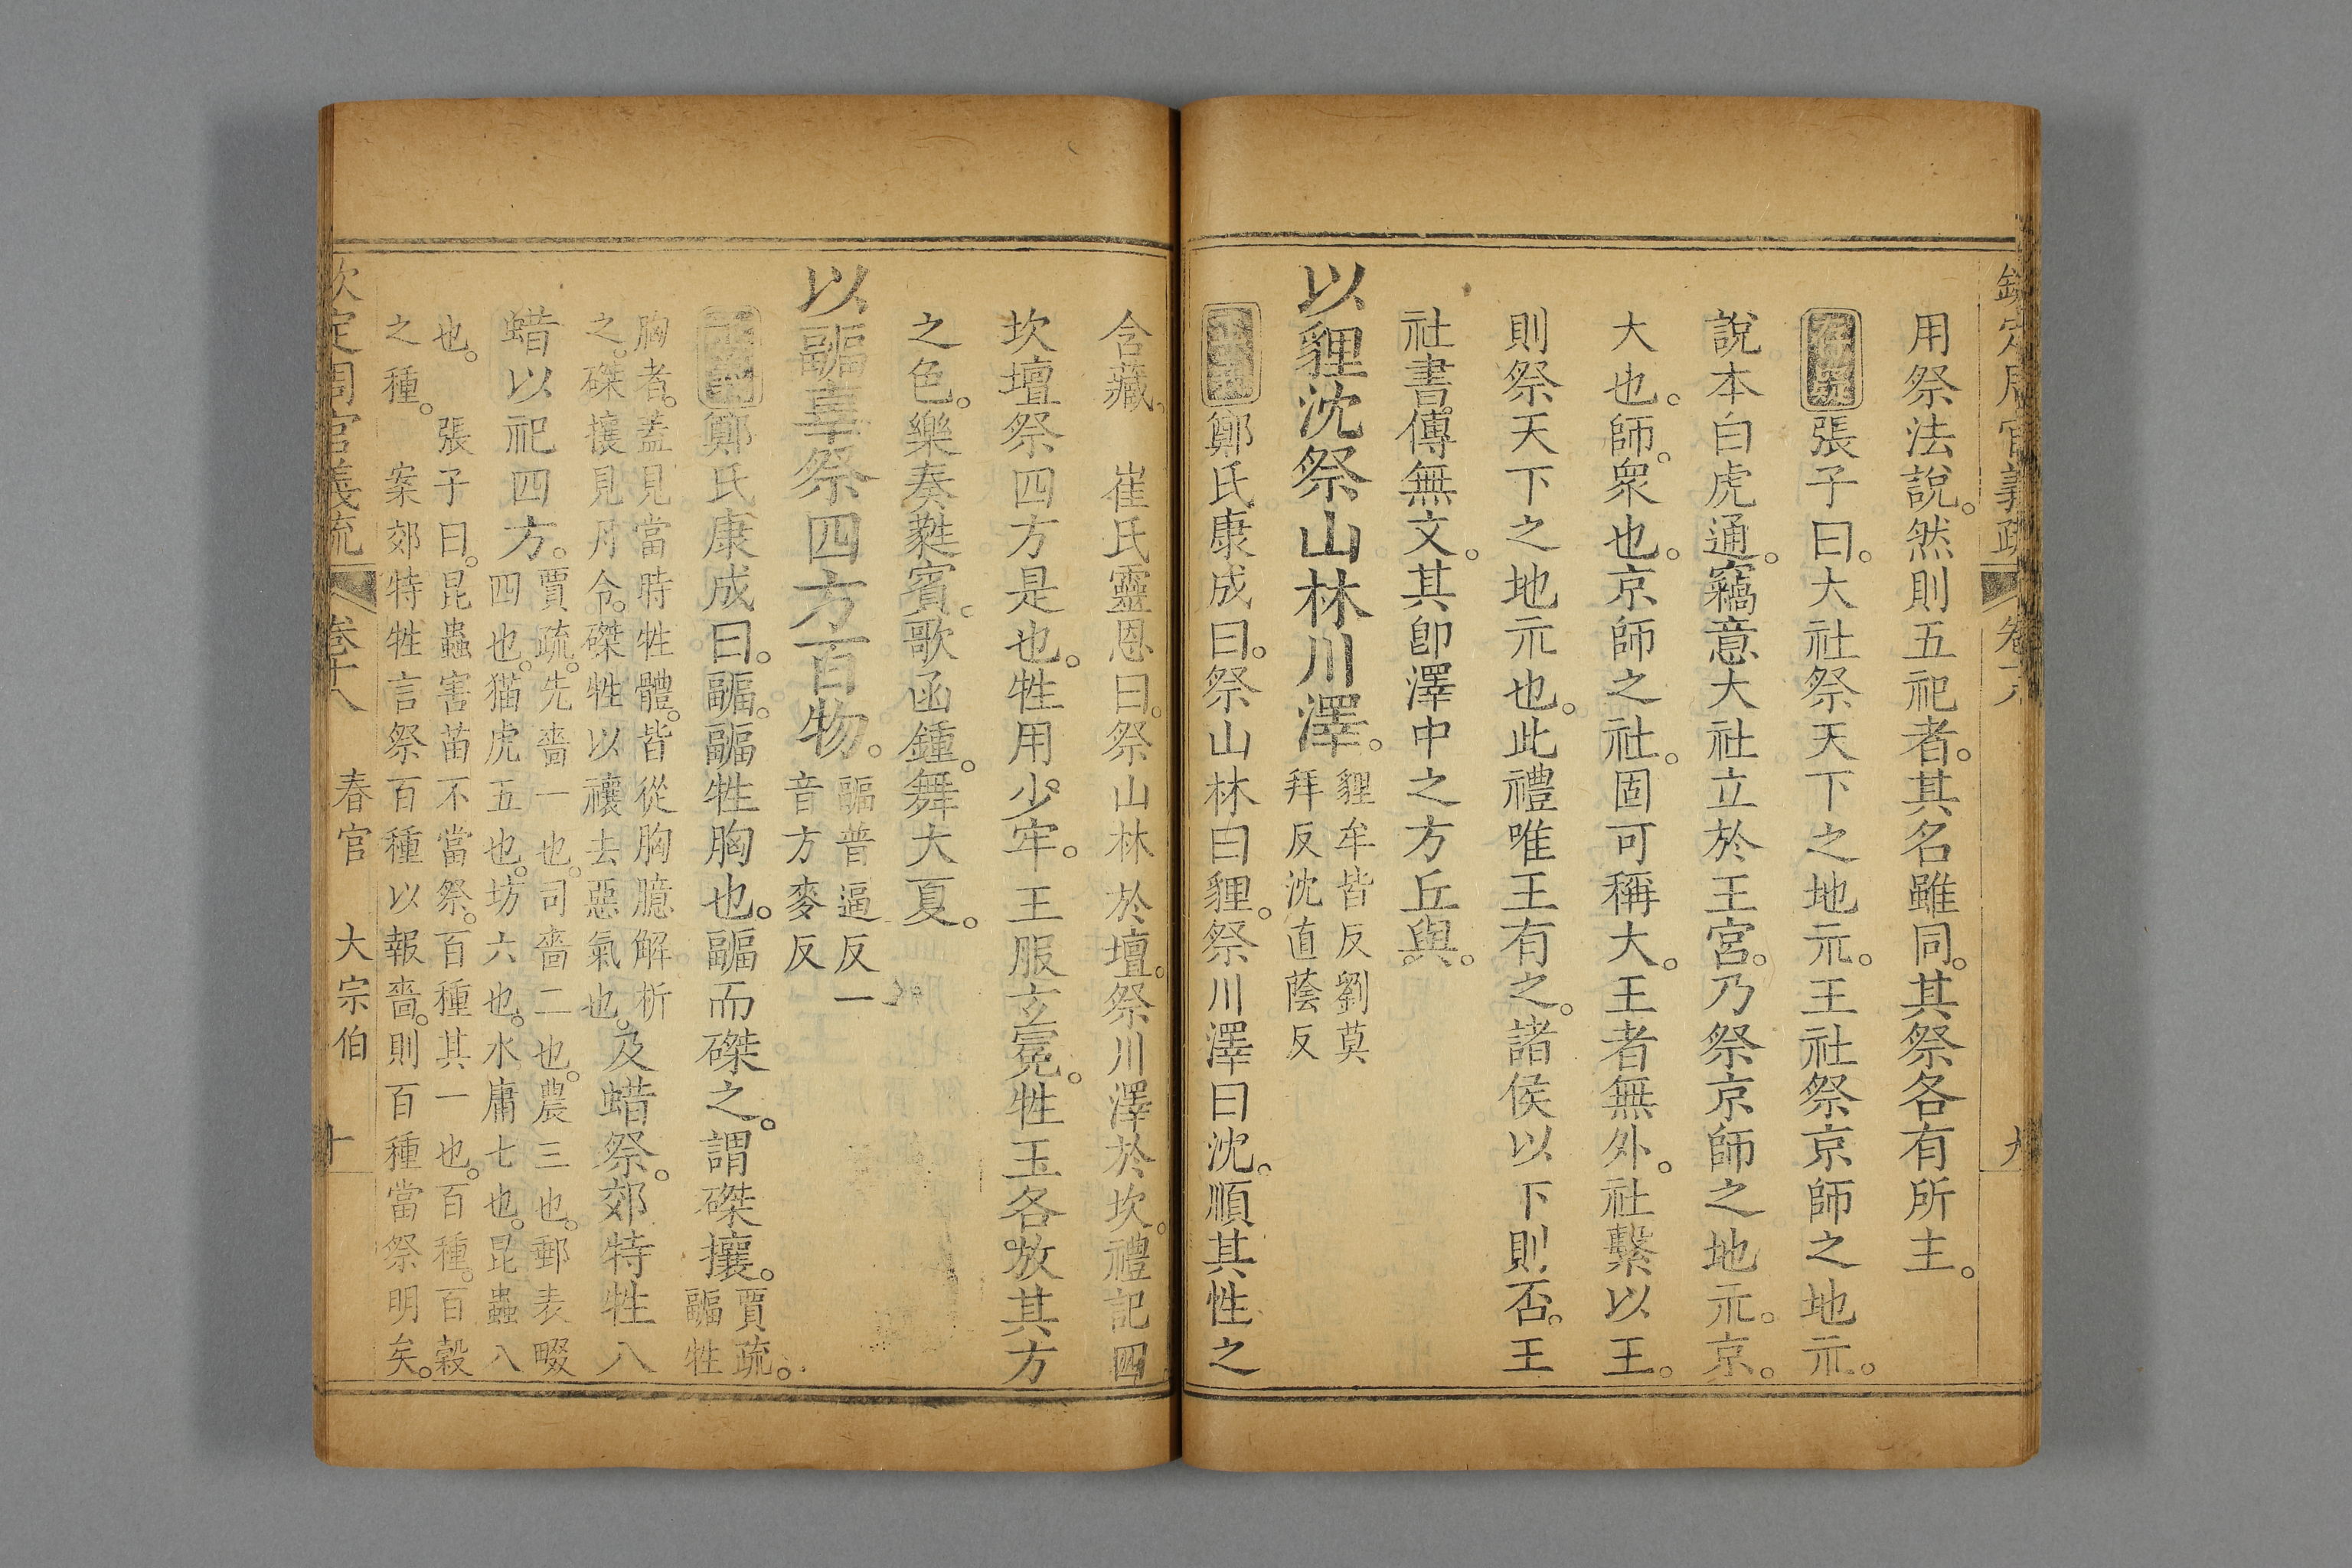 欽定周官義疏 卷十八 九
用祭法說。然則五祀者。其名雖同。其祭各有所主。
張子曰。大社祭天下之地示。王社祭京師之地示。
說本白虎通。竊意大社立於王宮。乃祭京師之地示。京。
大也。師。衆也。京師之社。固可稱大。王者無外。社繫以王。
則祭天下之地示也。此禮唯王有之。諸侯以下則否。王
社書傳無文。其卽澤中之方丘與。
以貍沈祭山林川澤。
貍牟皆反劉莫
拜反沈直蔭反
鄭氏康成曰。祭山林曰貍。祭川澤曰沈。順其性之
含藏。 崔氏靈恩曰。祭山林於壇。祭川澤於坎。禮記四
坎壇祭四方是也。牲用少牢。王服玄冕。牲玉各放其方
之色。樂奏蕤賓。歌函鍾。舞大夏。
以疈辜祭四方百物。
疈普逼反一
音方麥反
鄭氏康成曰。疈。疈牲胸也。疈而磔之。謂磔攘。
賈疏。
疈牲
胸者。蓋見當時牲體。皆從胸臆解析
之。磔攘見月令。磔牲以禳去惡氣也。
及蜡祭。郊特牲八
蜡以祀四方。
賈疏。先嗇一也。司嗇二也。農三也。郵表畷
四也。猫虎五也。坊六也。水庸七也。昆蟲八
也。 張子曰。昆蟲害苗不當祭。百種其一也。百種。百穀
之種。 案郊特牲言祭百種以報嗇。則百種當祭明矣。
欽定周官義疏 卷十八 春官 大宗伯 十